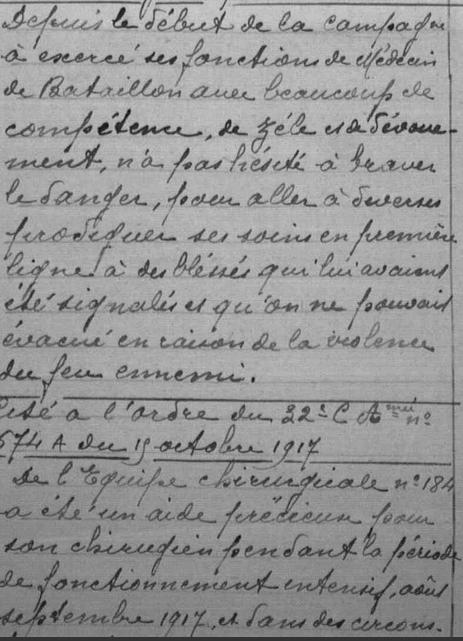 Depuis le début de la campagne
à exercé ses fonctions de Médecin
de Bataillon avec beaucoup de
compétence, de zéle et de dévoue-
ment, n'a pas hésité à braver
le danger, pour aller à diverses
prodiguer ses soins en première
ligne à des bléssés qui lui avaient
été signalés et qu'on ne pouvait
évacué en raison de la violence
du feu ennemi.
Cité a l'ordre du 32e C A mée no
574 A du 15 octobre 1917
De l'Equipe chirurgicale no 184
a été un aide précieux pour
son chirugien pendant la période
de fonctionnement intensif, août
septembre 1917, et dans des circons.